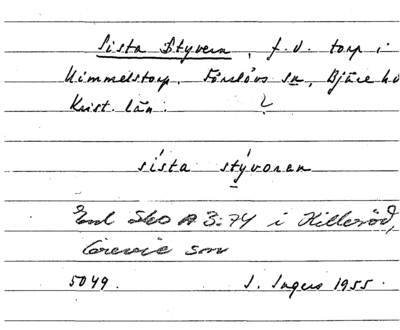 Sista Styvern, f.d. torp i
Himmelstorp. Förslövs sn, Bjäre hd
Krist. län. ?
sísta stývoren
Enl Sko A 3:74 i Killeröd,
Grevie sn
5049. S. Ingers 1955.